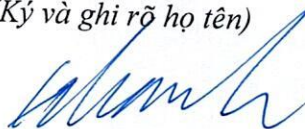 Ký và ghi rõ họ tên)